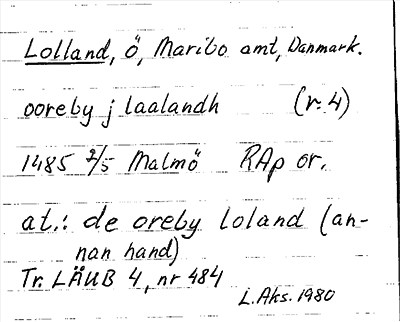 Lolland, ö, Maribo amt, Danmark.
ooreby j laalandh (r. 4)
1485 2/5 Malmö RAp or.
at.: de oreby loland (an-
nan hand)
Tr. LÄUB 4, nr 484
L.Aks. 1980